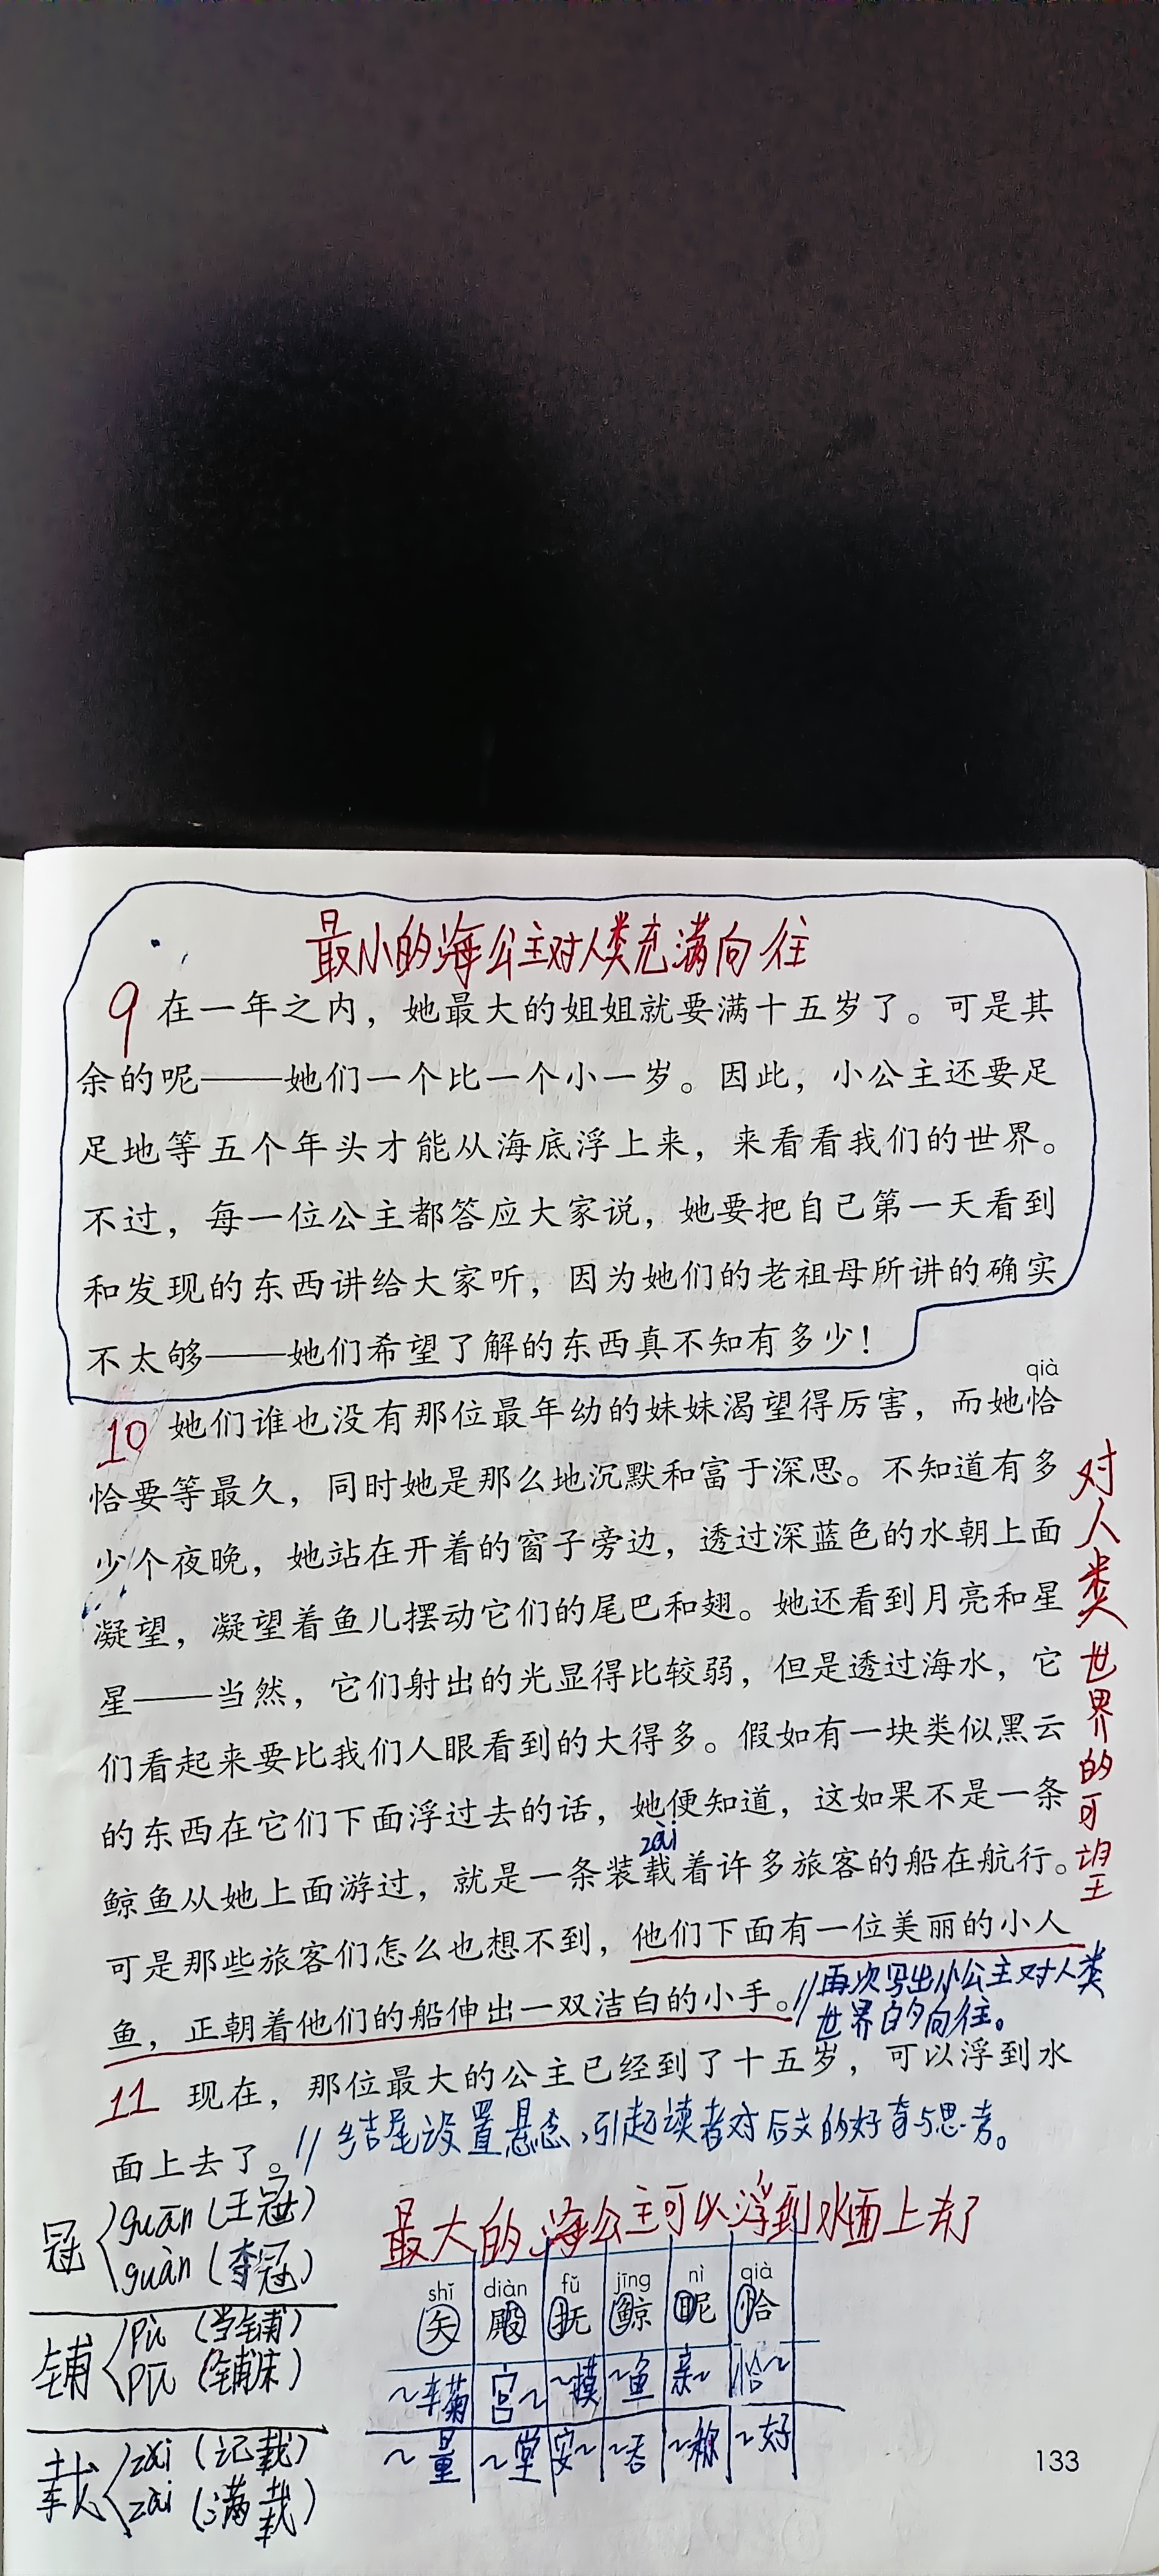 最小的海公主对人类充满向往
9 在一年之内，她最大的姐姐就要满十五岁了。可是其
余的呢——她们一个比一个小一岁。因此，小公主还要足
足地等五个年头才能从海底浮上来，来看看我们的世界。
不过，每一位公主都答应大家说，她要把自己第一天看到
和发现的东西讲给大家听，因为她们的老祖母所讲的确实
不太够——她们希望了解的东西真不知有多少！
qià
10 她们谁也没有那位最年幼的妹妹渴望得厉害，而她恰
恰要等最久，同时她是那么地沉默和富于深思。不知道有多
少个夜晚，她站在开着的窗子旁边，透过深蓝色的水朝上面
凝望，凝望着鱼儿摆动它们的尾巴和翅。她还看到月亮和星
星——当然，它们射出的光显得比较弱，但是透过海水，它
们看起来要比我们人眼看到的大得多。假如有一块类似黑云
的东西在它们下面浮过去的话，她便知道，这如果不是一条
zài
鲸鱼从她上面游过，就是一条装载着许多旅客的船在航行。
可是那些旅客们怎么也想不到，他们下面有一位美丽的小人
鱼，正朝着他们的船伸出一双洁白的小手。
对人类世界的可望
//再次写出小公主对人类
世界的向往。
11 现在，那位最大的公主已经到了十五岁，可以浮到水
面上去了。//结尾设置悬念，引起读者对后文的好奇与思考。
最大的海公主可以浮到水面上去了
冠 guān（王冠）
guàn（夺冠）
铺 pù（当铺）
pū（铺床）
载 zǎi（记载）
zài（满载）
shǐ diàn fǔ jīng nì qià
矢 殿 抚 鲸 昵 恰
～车菊 宫～ ～摸 ～鱼 亲～ 恰～
～量 ～堂 安～ ～吞 ～称 ～好
133